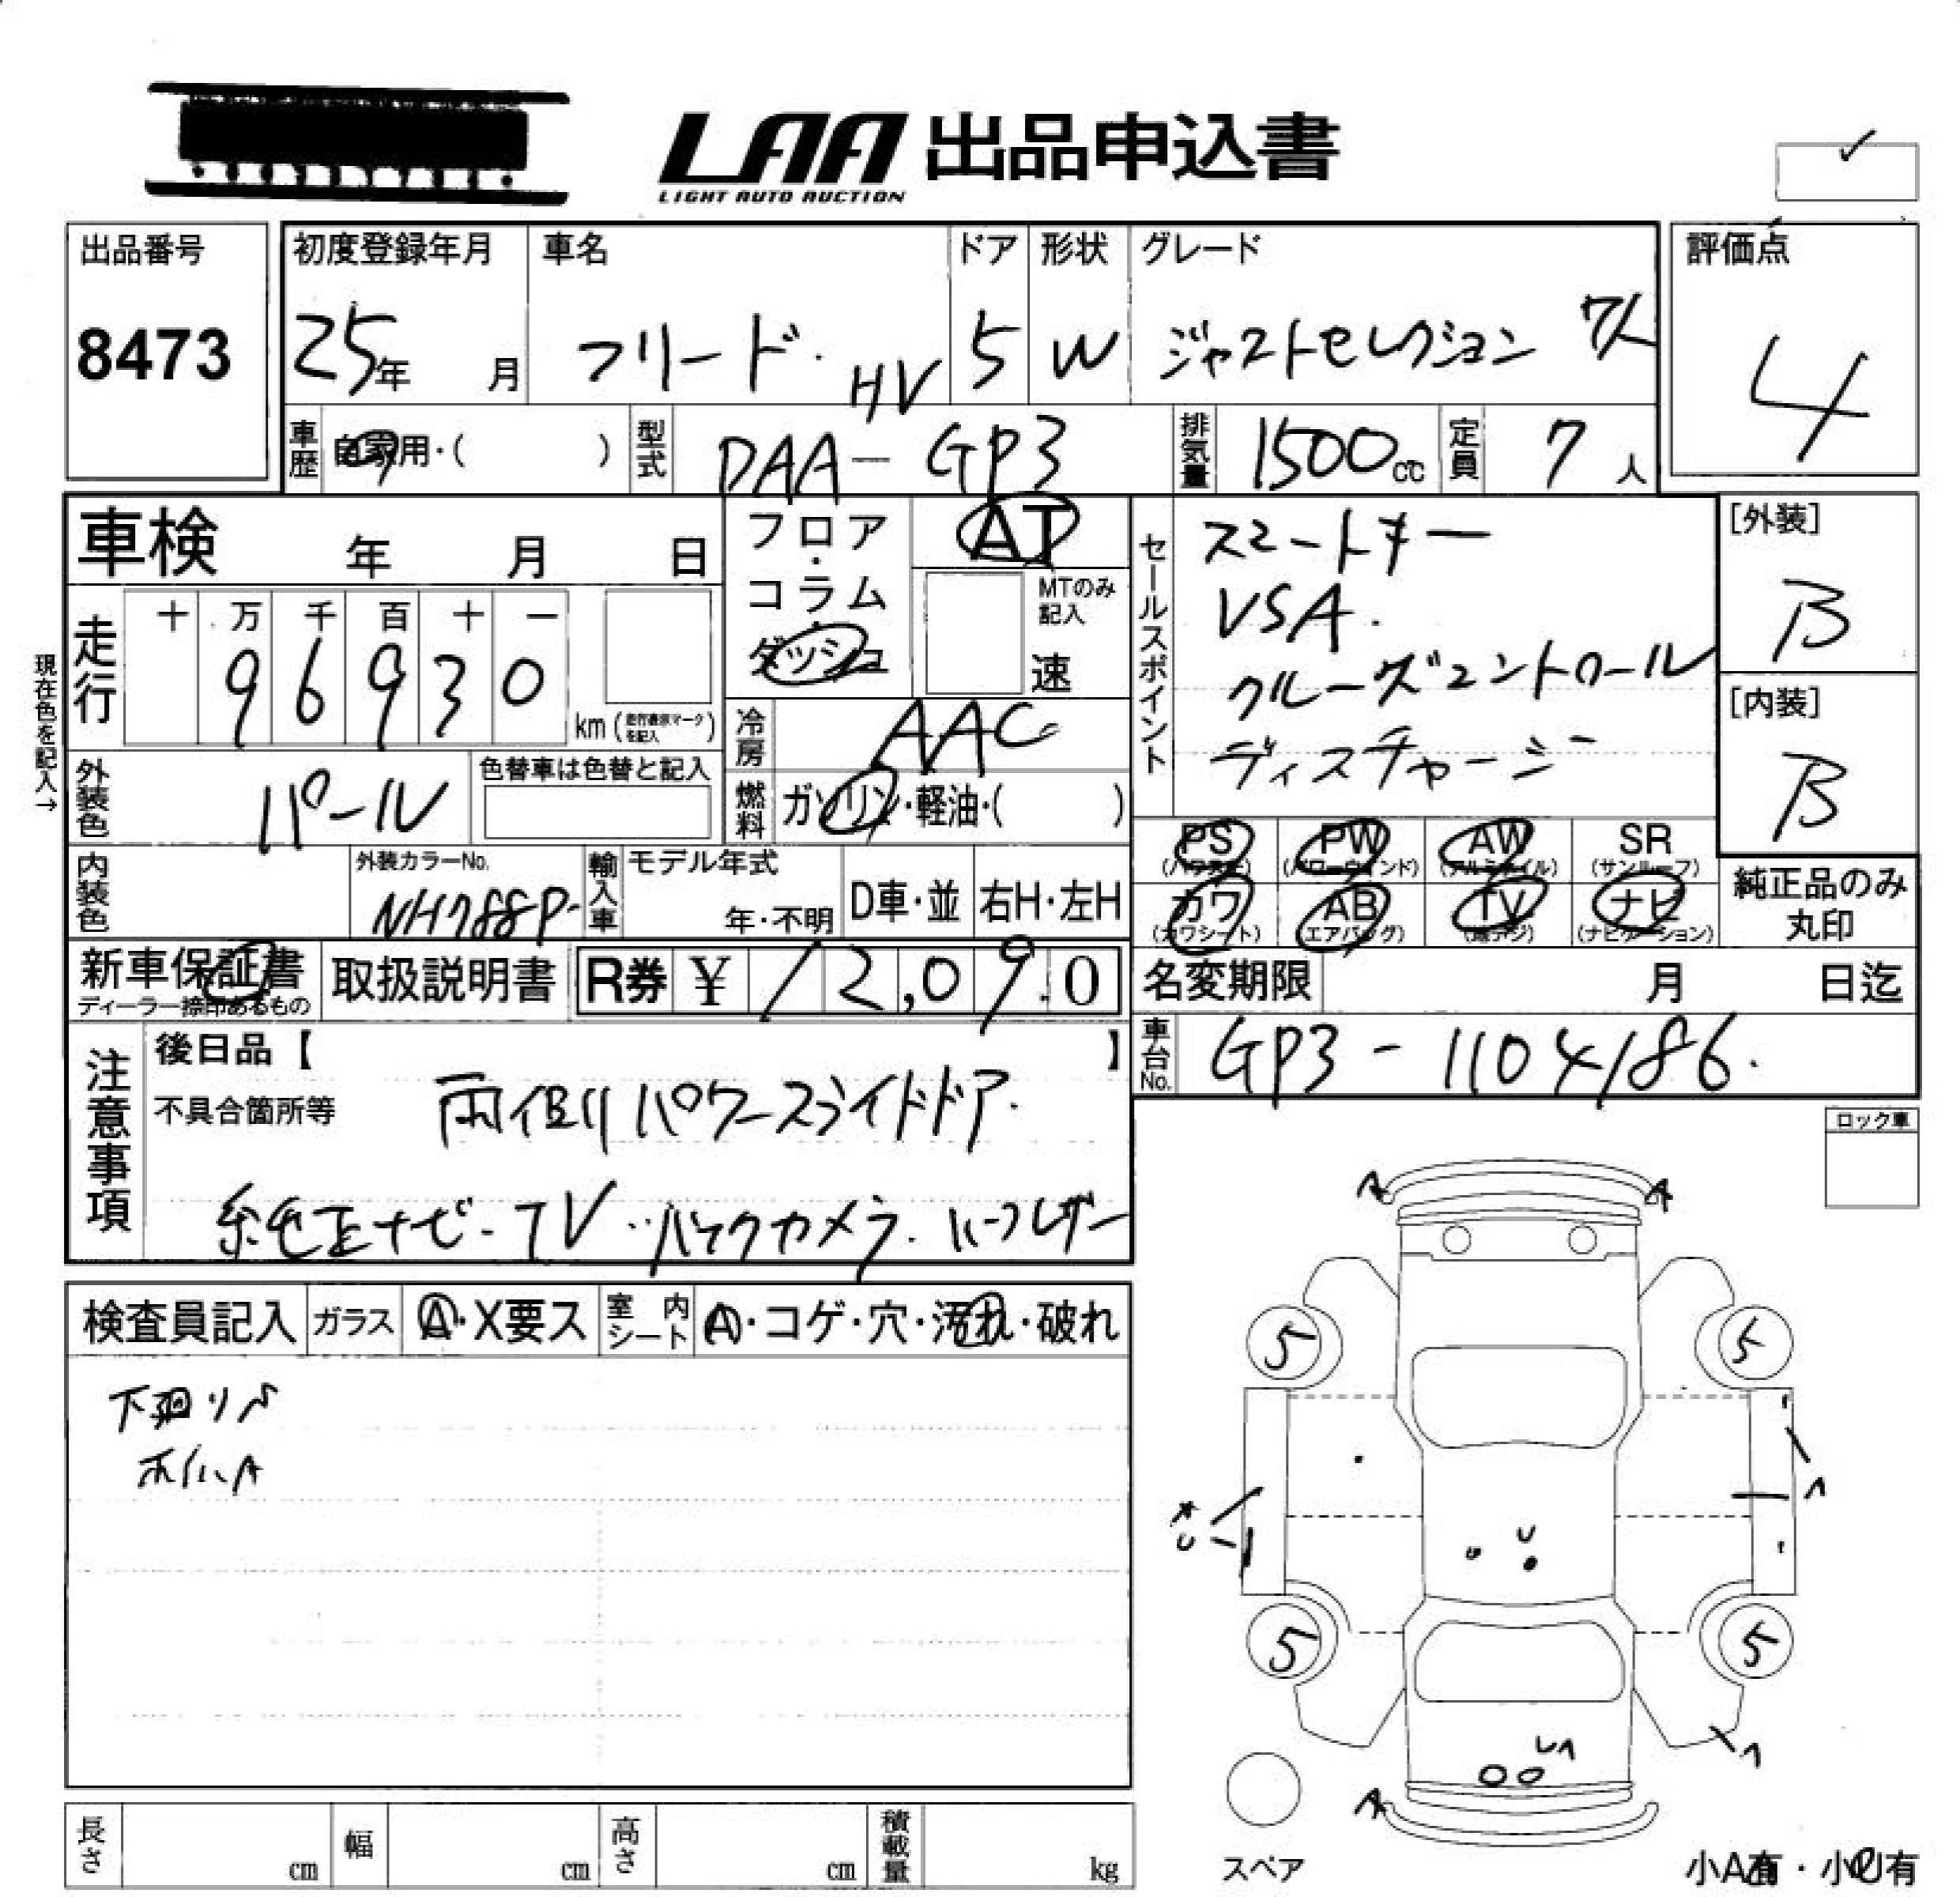 LAA 出品申込書
LIGHT AUTO AUCTION
出品番号
8473
初度登録年月
25年 月
車名
フリード HV
ドア
5
形状
W
グレード
ジャストセレクション 7人
評価点
4
車歴 自家用・( )
型式 DAA-GP3
排気量 1500cc
定員 7人
車検 年 月 日
フロア・コラム・ダッシュ
AT
MTのみ記入
速
セールスポイント
スマートキー
VSA.
クルーズコントロール
ディスチャージ
[外装]
B
[内装]
B
現在色を記入→
走行
十 万 千 百 十 一
9 6 9 3 0
km (走行表示マークを記入)
冷房 AAC
燃料 ガソリン・軽油・( )
外装色 パール
色替車は色替と記入
内装色
外装カラーNo.
NH788P
輸入車
モデル年式
年・不明
D車・並
右H・左H
PS (パワステ)
PW (パワーウィンド)
AW (アルミホイル)
SR (サンルーフ)
カワ (カワシート)
AB (エアバッグ)
TV (地デジ)
ナビ (ナビゲーション)
純正品のみ丸印
新車保証書
ディーラー捺印あるもの
取扱説明書
R券 ¥ 12,090
名変期限 月 日迄
車台No. GP3-1104186.
注意事項
後日品【 】
不具合箇所等
両側パワースライドドア.
純正ナビ-TV・バックカメラ.ハーフレザー
ロック車
検査員記入
ガラス Ⓐ・X要ス
室内シート Ⓐ・コゲ・穴・汚れ・破れ
下廻りS
ホイルA
A A
5 5
U
5 5
UA
A
長さ cm
幅 cm
高さ cm
積載量 kg
スペア
小A有・小U有